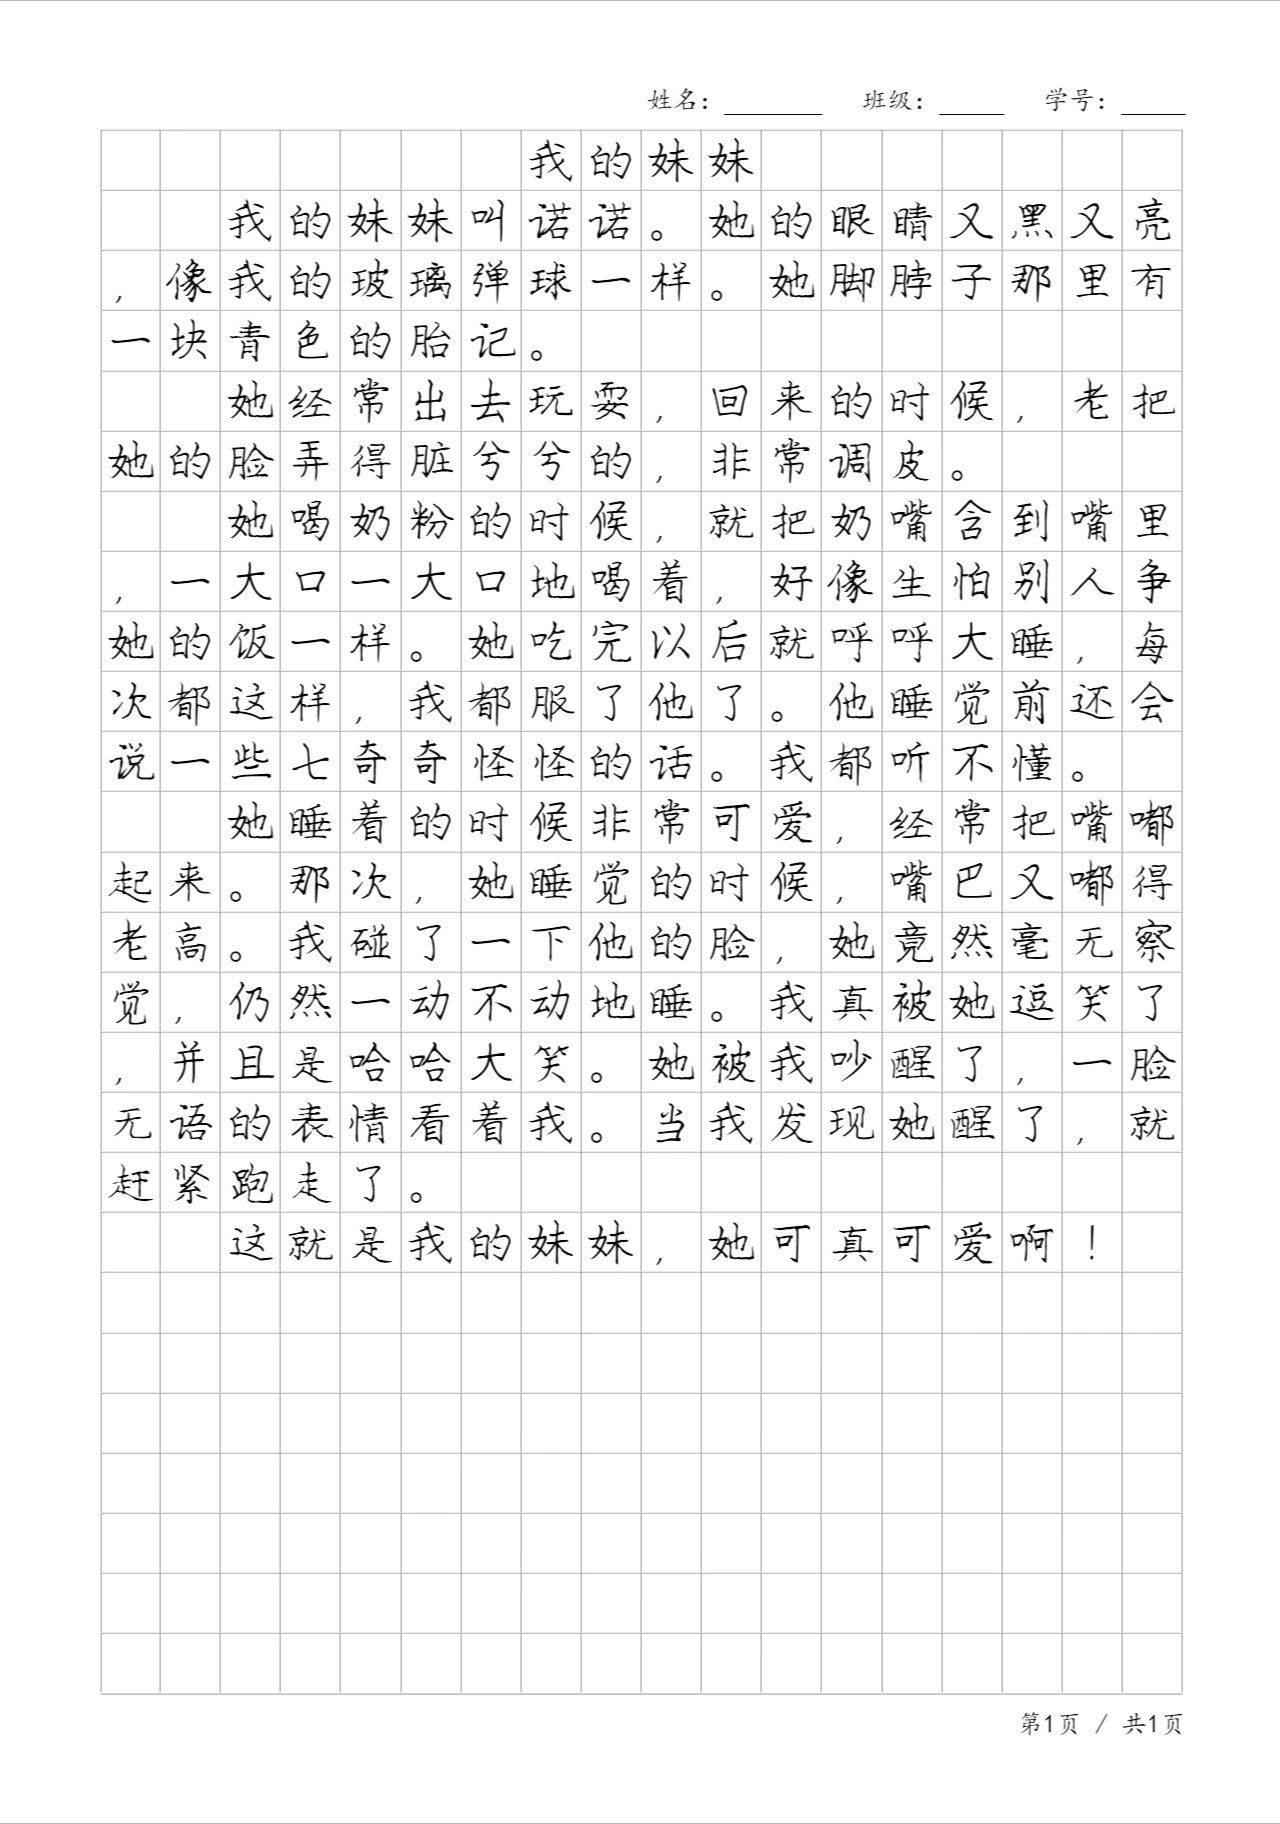 姓名：________ 班级：_____ 学号：_____
我的妹妹
我的妹妹叫诺诺。她的眼睛又黑又亮
，像我的玻璃弹球一样。她脚脖子那里有
一块青色的胎记。
她经常出去玩耍，回来的时候，老把
她的脸弄得脏兮兮的，非常调皮。
她喝奶粉的时候，就把奶嘴含到嘴里
，一大口一大口地喝着，好像生怕别人争
她的饭一样。她吃完以后就呼呼大睡，每
次都这样，我都服了他了。他睡觉前还会
说一些七奇奇怪怪的话。我都听不懂。
她睡着的时候非常可爱，经常把嘴嘟
起来。那次，她睡觉的时候，嘴巴又嘟得
老高。我碰了一下他的脸，她竟然毫无察
觉，仍然一动不动地睡。我真被她逗笑了
，并且是哈哈大笑。她被我吵醒了，一脸
无语的表情看着我。当我发现她醒了，就
赶紧跑走了。
这就是我的妹妹，她可真可爱啊！
第1页 / 共1页